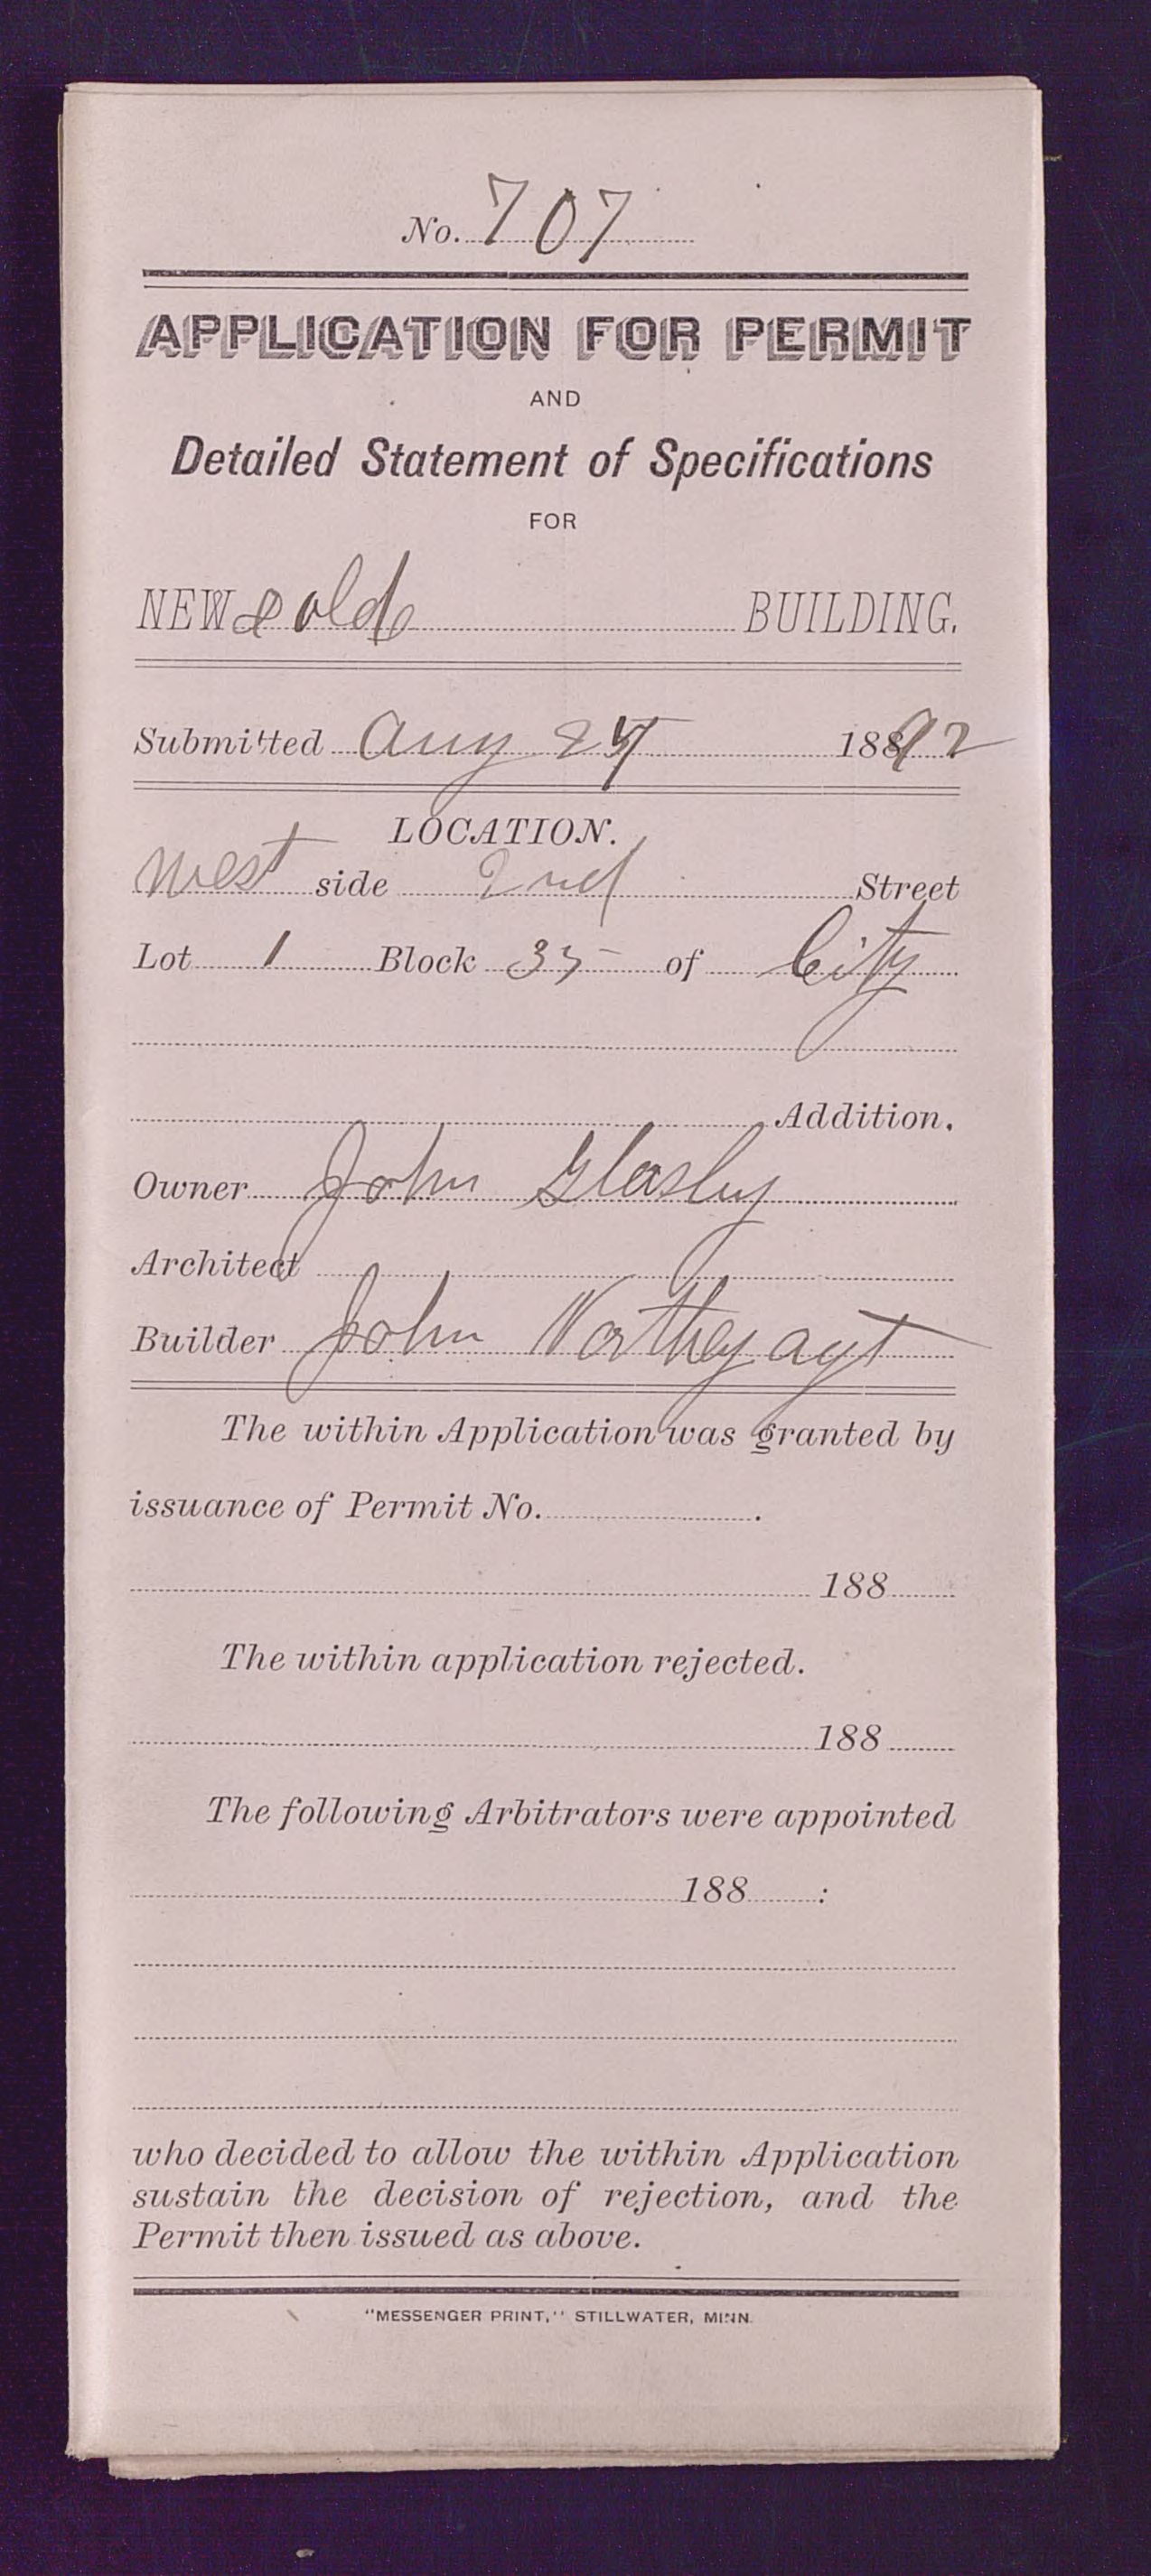 No. 707
APPLICATION FOR PERMIT
AND
Detailed Statement of Specifications
FOR
NEW & old BUILDING.
Submitted Aug 25 1892
LOCATION.
West side 2nd Street
Lot 1 Block 35 of City
Addition.
Owner John Glasby
Architect
Builder John Northey agt
The within Application was granted by
issuance of Permit No. .
188
The within application rejected.
188
The following Arbitrators were appointed
188 :
who decided to allow the within Application
sustain the decision of rejection, and the
Permit then issued as above.
"MESSENGER PRINT," STILLWATER, MINN.